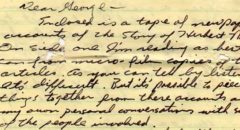 Dear George –
Enclosed is a tape of newspaper
accounts of the story of Herbert
On side one I'm reading
from micro-film copies of
articles. As you can tell by
different. But it's possible to
things together from these accounts
my own personal conversations with
of the people involved.